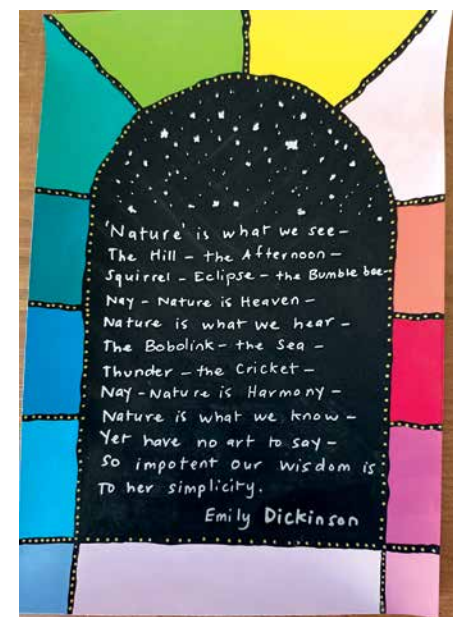 'Nature' is what we see –
The Hill – the Afternoon –
Squirrel – Eclipse – the Bumble bee –
Nay – Nature is Heaven –
Nature is what we hear –
The Bobolink – the Sea –
Thunder – the Cricket –
Nay – Nature is Harmony –
Nature is what we know –
Yet have no art to say –
So impotent our wisdom is
To her simplicity.
Emily Dickinson